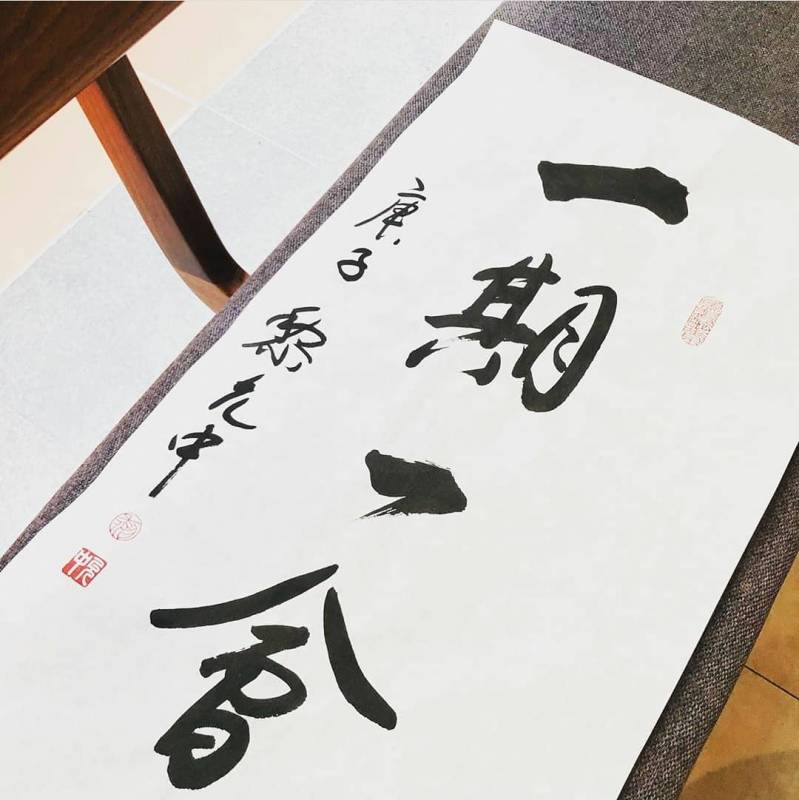 一期一會
庚子 黎 中